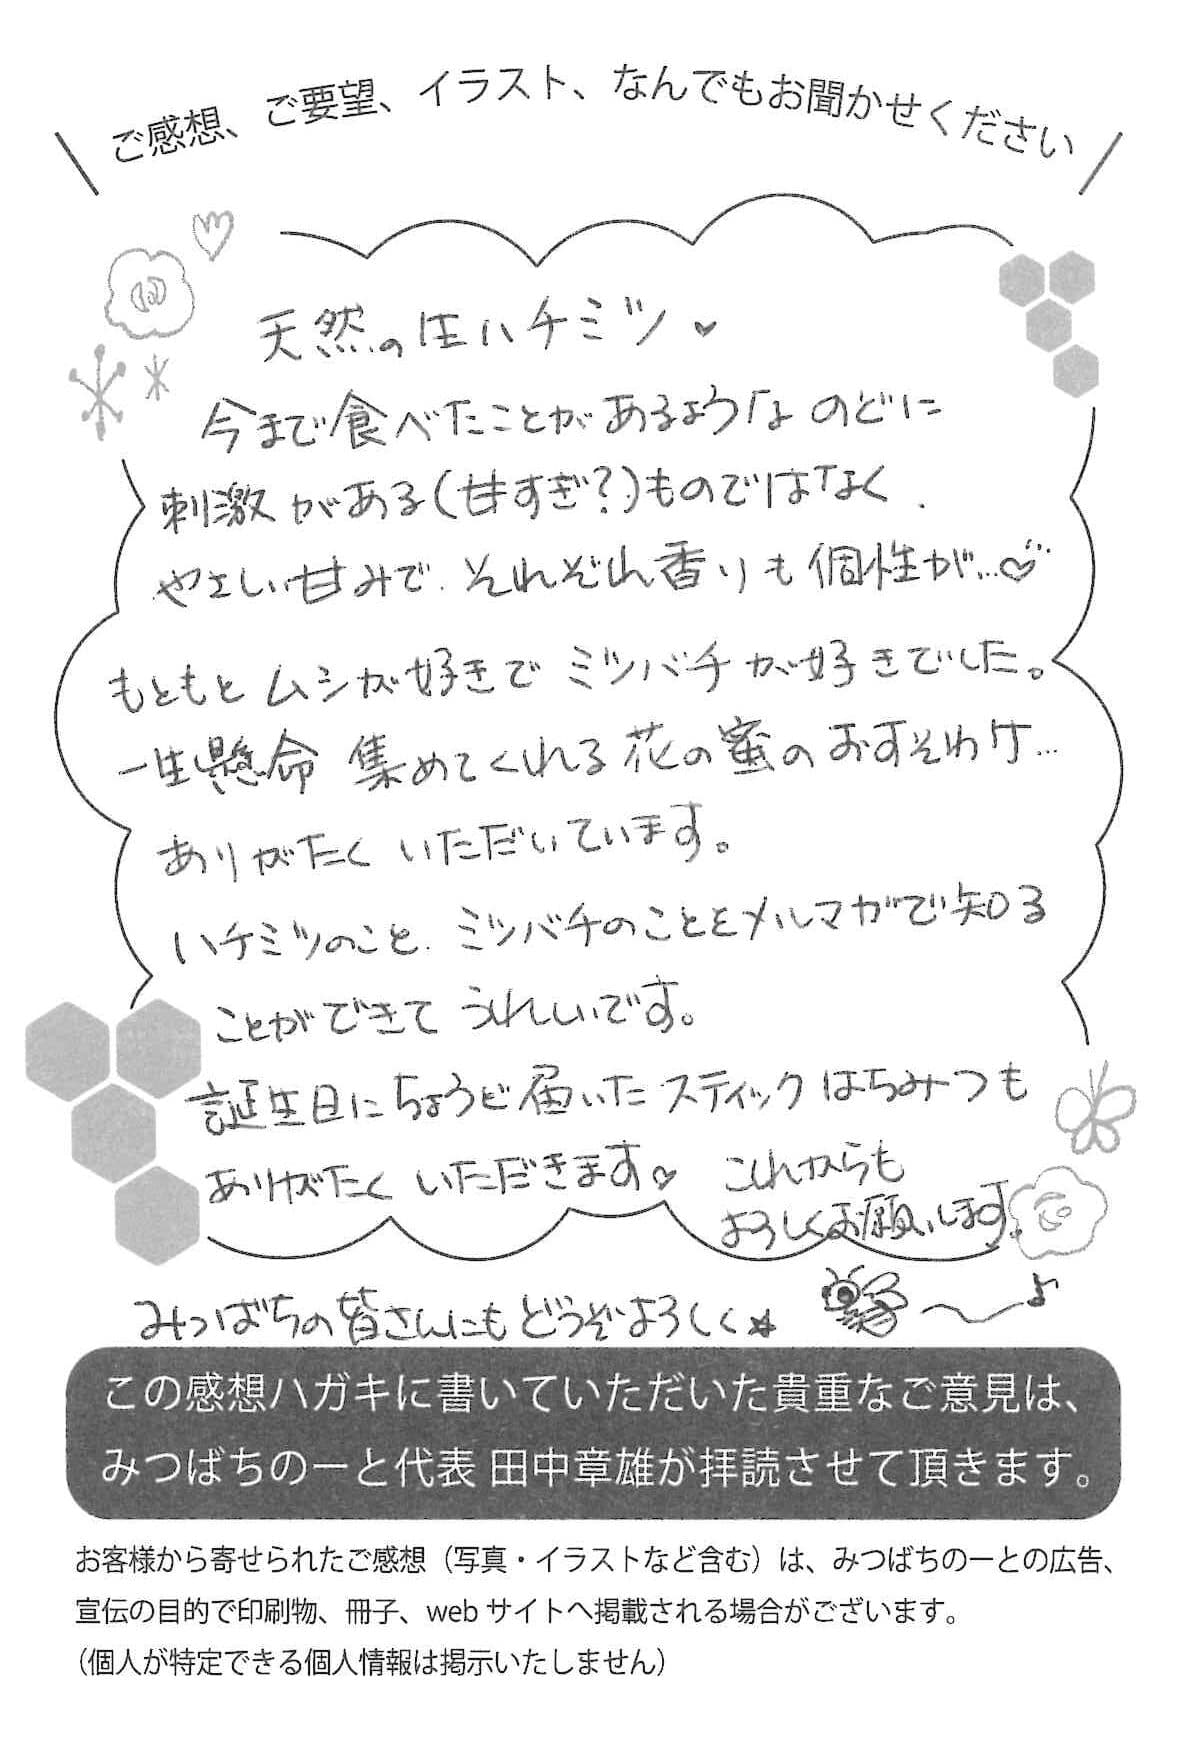 ご感想、ご要望、イラスト、なんでもお聞かせください
天然の生ハチミツ♥
今まで食べたことがあるようなのどに
刺激がある(甘すぎ?)ものではなく、
やさしい甘みで、それぞれ香りも個性が…♡
もともとムシが好きでミツバチが好きでした。
一生懸命 集めてくれる花の蜜のおすそわけ…
ありがたく いただいています。
ハチミツのこと、ミツバチのことをメルマガで知る
ことができて うれしいです。
誕生日にちょうど届いたスティックはちみつも
ありがたく いただきます♡ これからも
よろしくお願いします。
みつばちの皆さんにもどうぞよろしく★
この感想ハガキに書いていただいた貴重なご意見は、
みつばちのーと代表 田中章雄が拝読させて頂きます。
お客様から寄せられたご感想（写真・イラストなど含む）は、みつばちのーとの広告、
宣伝の目的で印刷物、冊子、web サイトへ掲載される場合がございます。
（個人が特定できる個人情報は掲示いたしません）